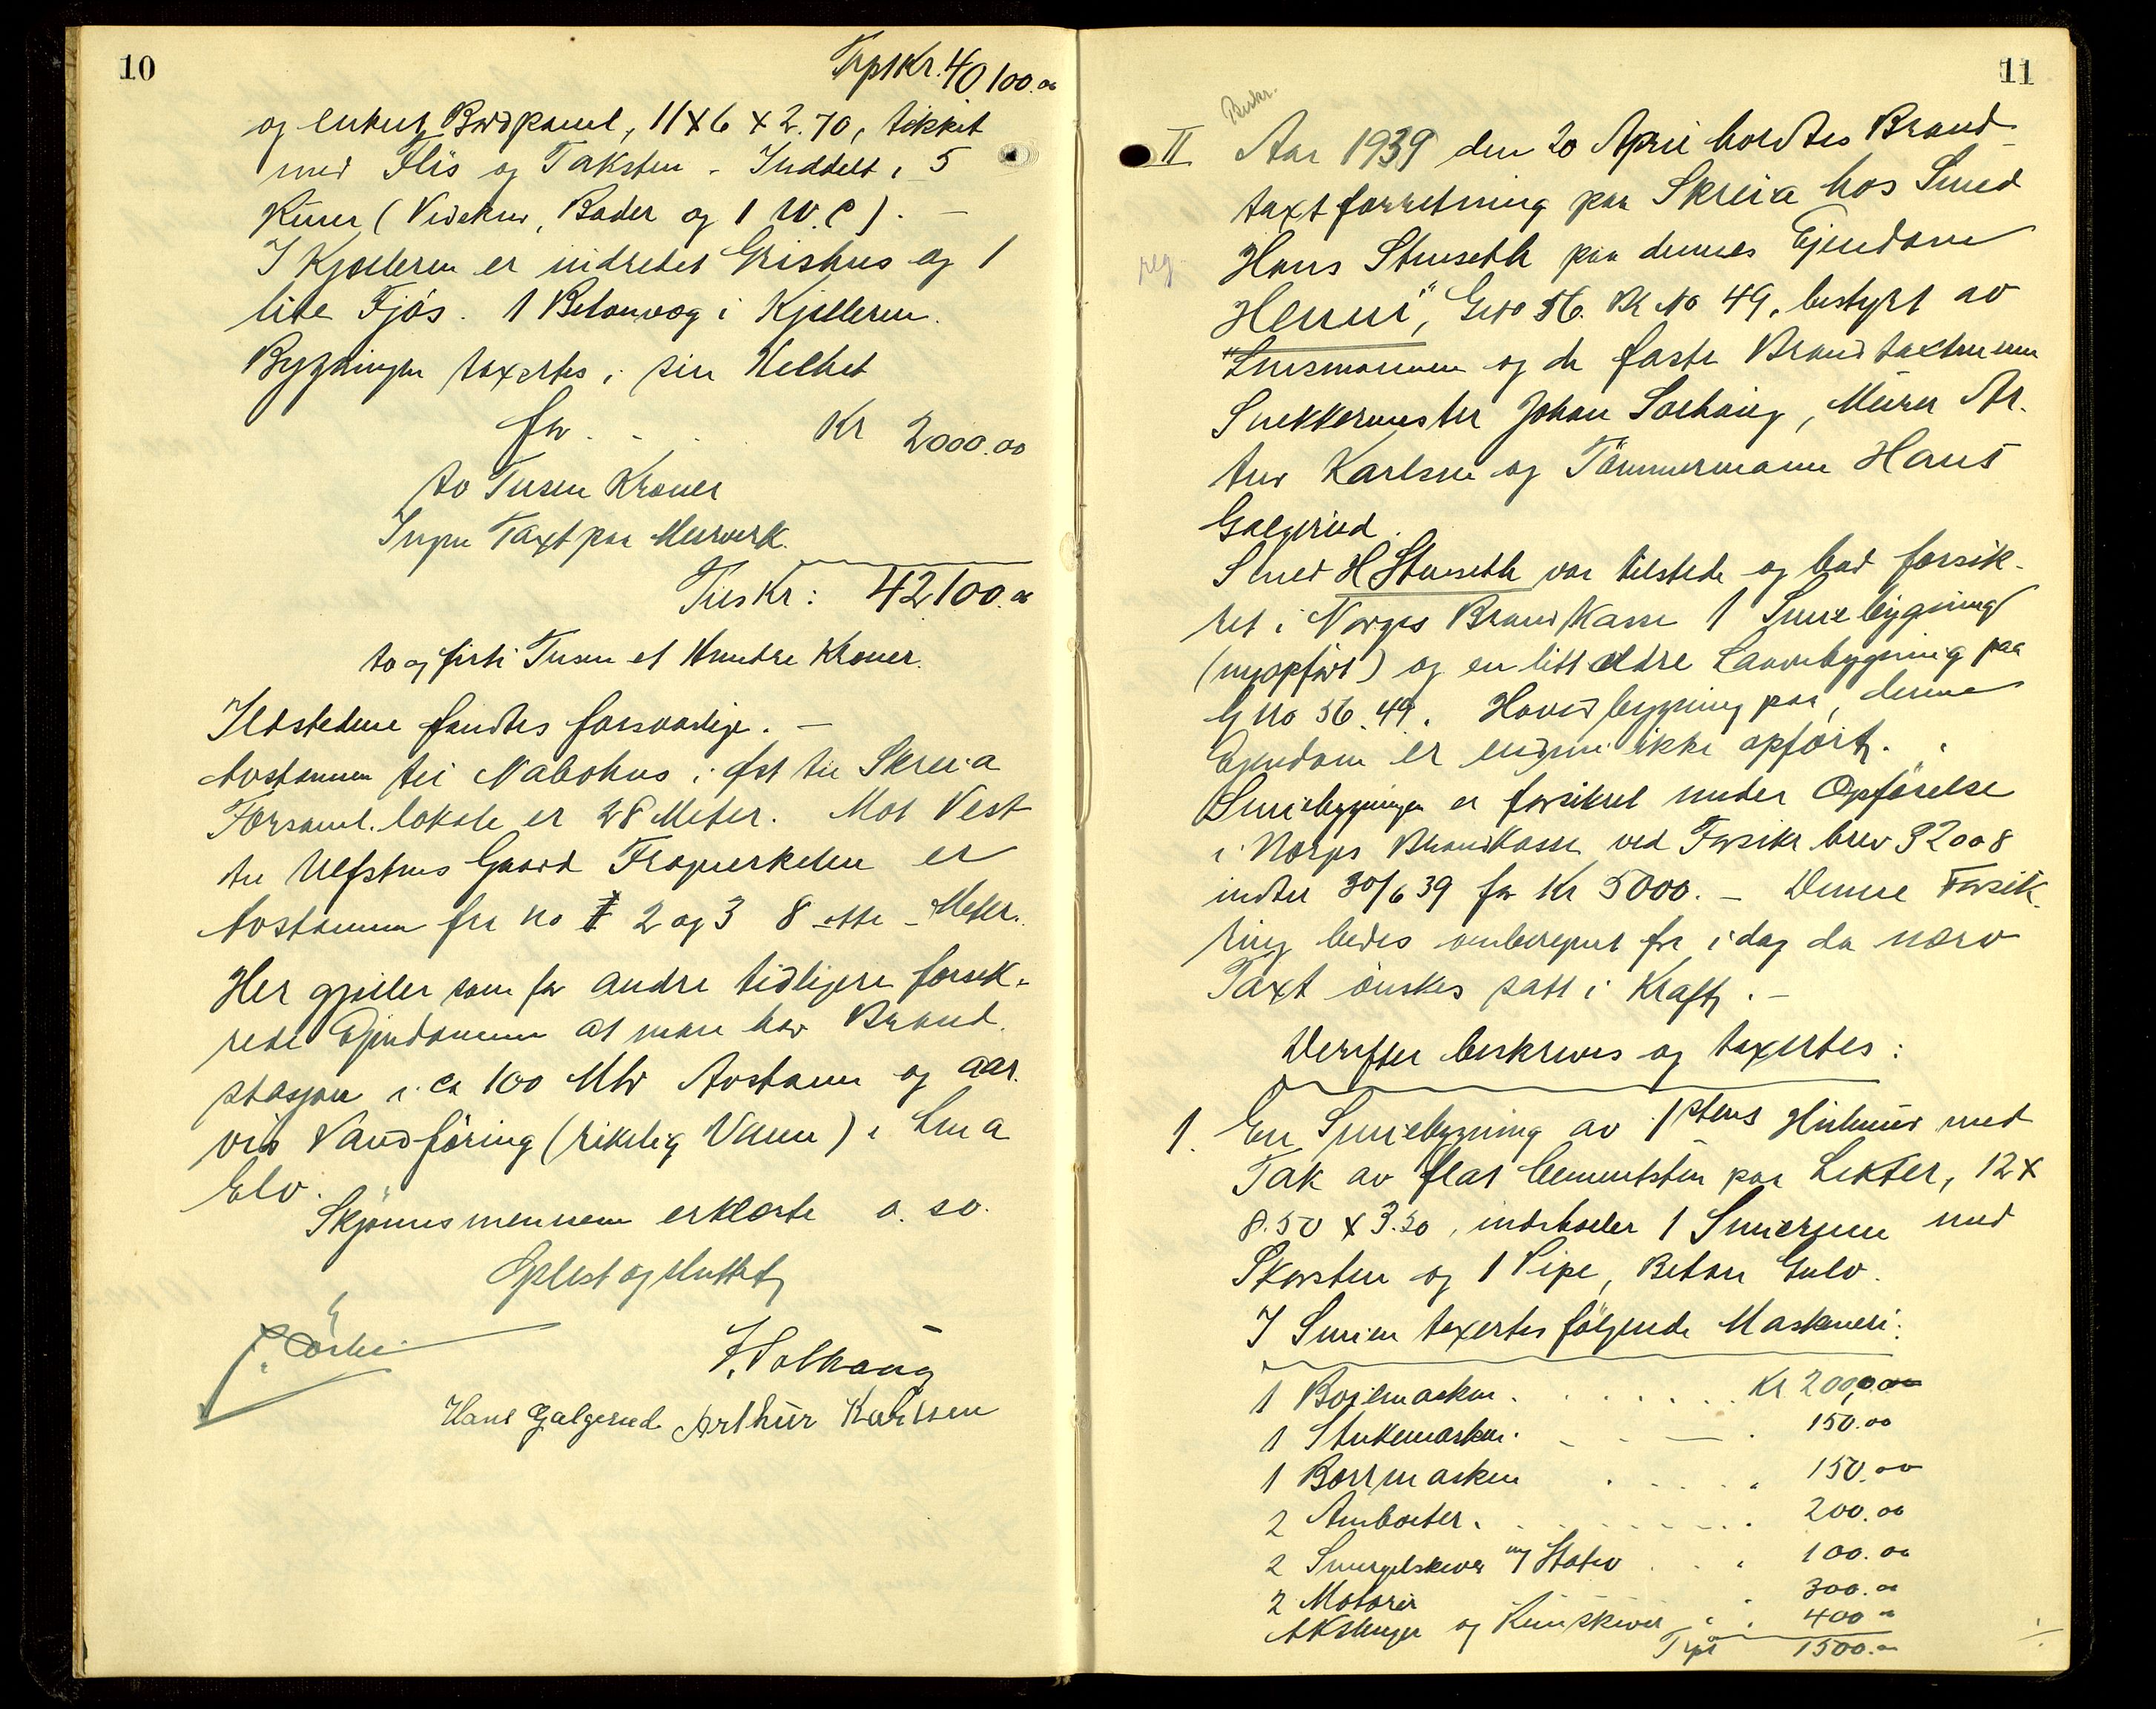 10
Trpt Kr. 40100.00
og enkelt Bordpanel, 11 x 6 x 2.70, tekket
med Flis og Taksten - Inddelt i 5
Rum (Vedskur, Boder og 1 W.C). -
I Kjelleren er indredet Grishus og 1
lite Fjøs. 1 Betonvæg i Kjelleren.
Bygningen taxertes i sin Helhet
for . . . Kr 2000.00
to Tusen Kroner
Ingen Taxt paa Murverk.
Tils Kr: 42100.00
to og firti Tusen et Hundre Kroner.
Ildstedene fandtes forsvarlige. -
Avstannen til Nabohus i Øst til Skreia
Forsaml. lokale er 28 Meter. Mot Vest
til Ulfstens Gaard
Avstannen fra no 1 2 og 3 8 - otte - Meter.
Her gjelder som for andre tidligere forsik-
rede Ejendommer at man har Brand
stasjon i ca 100 Mtr Avstann og aar
vis Vandføring (rikelig Vann) i Lena
Elv.
Skjønnsmennene erklærte o. sv.
Oplest og sluttet
J. Solhaug
Hans Galgerud Arthur Karlsen
11
Beskr.
II Aar 1939 den 20 April holdtes Brand-
taxtforretning paa Skreia hos Smed
reg. Hans Stenseth paa dennes Ejendom
"Henni", Gno 56. Br No 49, bestyrt av
Lensmannen og de faste Brandtaxtmenn
Snekkermester Johan Solhaug, Murer Ar-
tur Karlsen og Tømmermann Hans
Galgerud.
Smed H Stenseth var tilstede og bad forsik-
ret i Norges Brandkasse 1 Smiebygning
(nyopført) og en litt eldre Laavebygning paa
G no 56. 49. Hovedbygning paa denne
Ejendom er endnu ikke opført.
Smiebygningen er forsikret under Opførelse
i Norges Brandkasse ved Forsikr brev 32008
indtil 30/6 39 for Kr 5000. - Denne Forsik
ring bedes omberegnet fra i dag da nærv
Taxt ønskes satt i Kraft. -
Derefter beskrives og taxertes:
1. En Smiebygning av 1 stens Hulmur med
Tak av flat Cementsten paa Lekter, 12 x
8.50 x 3.50, indeholder 1 Smierum med
Skorsten og 1 Pipe, Beton Gulv.
I Smien taxertes følgende Maskineri:
1 Boiemaskin . . . . Kr 200,00
1 Stukemaskin . - . - . 150.00
1 Borrmaskin . . . . 150.00
2 Ambolter . . . . 200.00
2 Smergelskiver m/ Stativ . . 100.00
2 Motorer 300.00
Akslinger og Remskiver . . 400.00
Trpt 1500.00